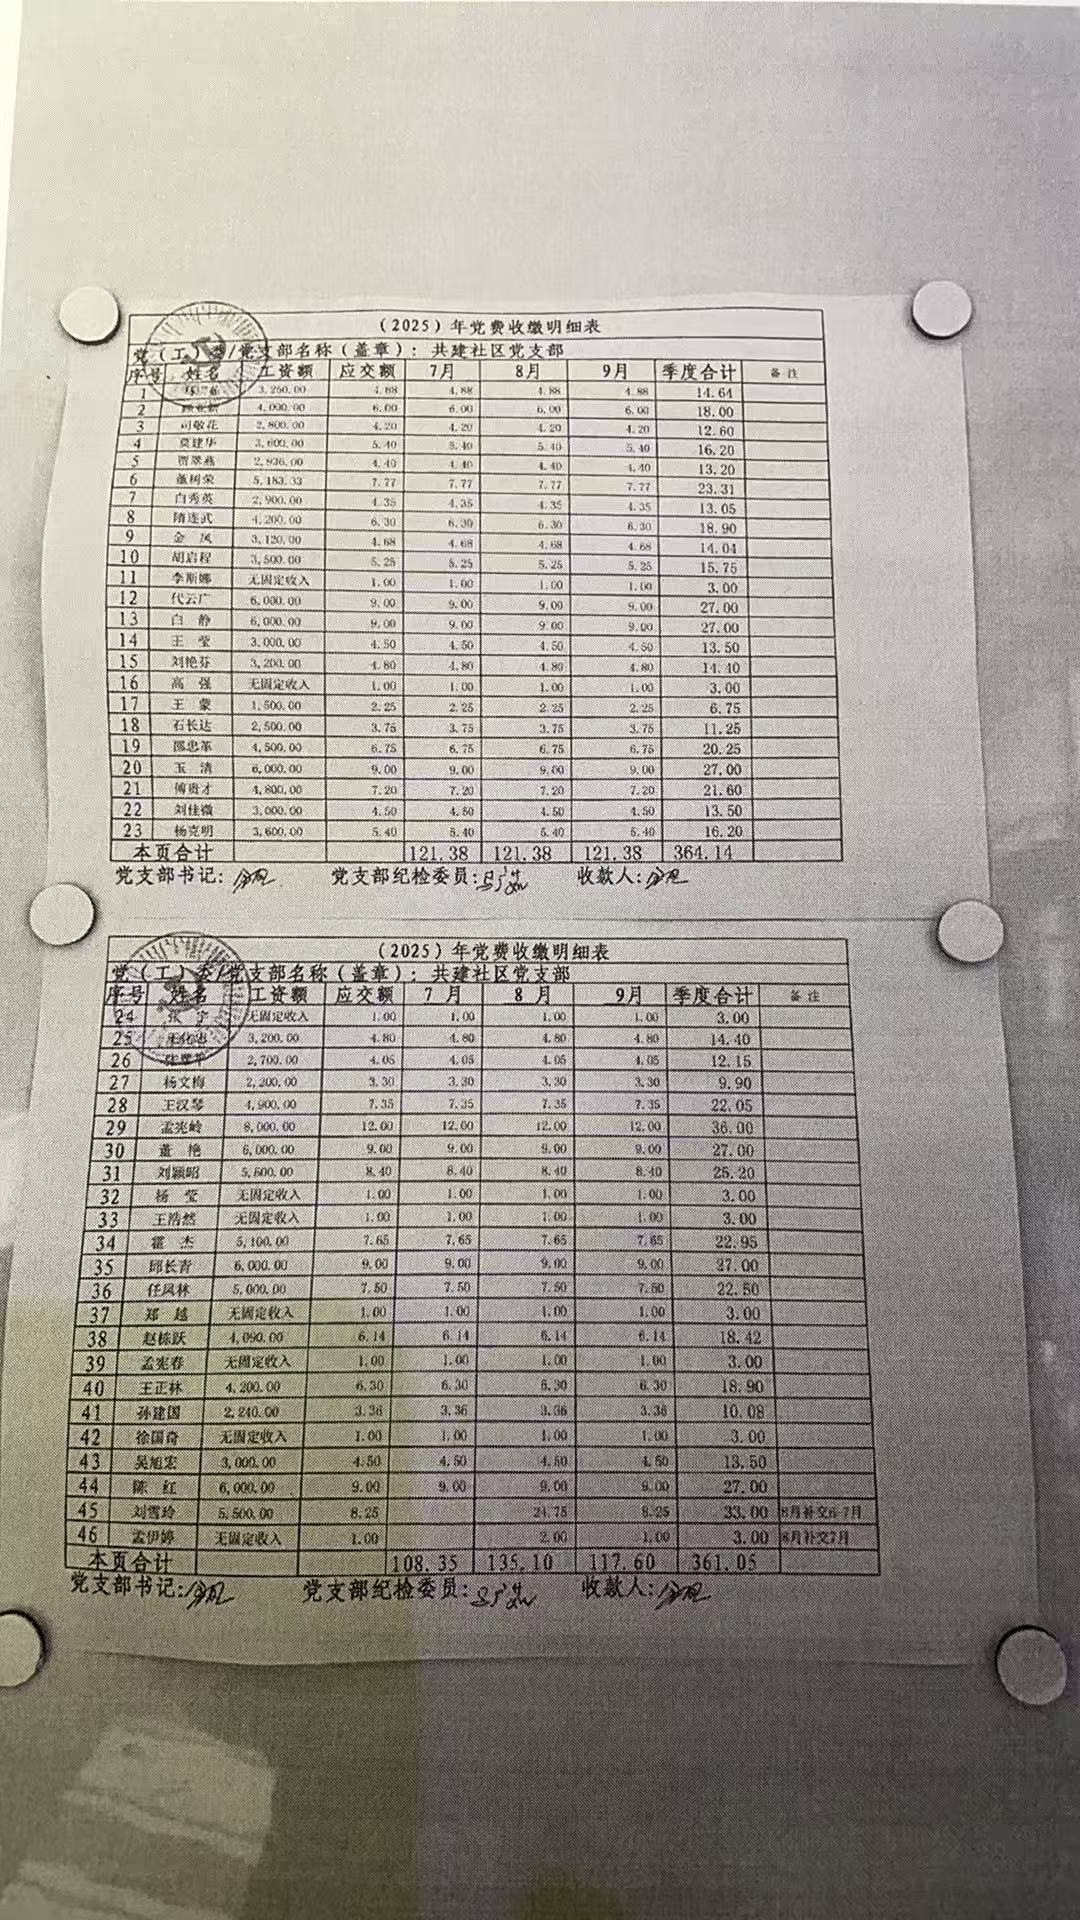 (2025)年党费收缴明细表
党(工)委/党支部名称(盖章): 共建社区党支部
序号 姓名 工资额 应交额 7月 8月 9月 季度合计 备注
1 3,250.00 4.88 4.88 4.88 4.88 14.64
2 4,000.00 6.00 6.00 6.00 6.00 18.00
3 司敬花 2,800.00 4.20 4.20 4.20 4.20 12.60
4 莫建华 3,600.00 5.40 5.40 5.40 5.40 16.20
5 贾翠燕 2,936.00 4.40 4.40 4.40 4.40 13.20
6 董树荣 5,183.33 7.77 7.77 7.77 7.77 23.31
7 白秀英 2,900.00 4.35 4.35 4.35 4.35 13.05
8 隋连武 4,200.00 6.30 6.30 6.30 6.30 18.90
9 金凤 3,120.00 4.68 4.68 4.68 4.68 14.04
10 胡启程 3,500.00 5.25 5.25 5.25 5.25 15.75
11 李斯娜 无固定收入 1.00 1.00 1.00 1.00 3.00
12 代云广 6,000.00 9.00 9.00 9.00 9.00 27.00
13 白静 6,000.00 9.00 9.00 9.00 9.00 27.00
14 王莹 3,000.00 4.50 4.50 4.50 4.50 13.50
15 刘艳芬 3,200.00 4.80 4.80 4.80 4.80 14.40
16 高强 无固定收入 1.00 1.00 1.00 1.00 3.00
17 王蒙 1,500.00 2.25 2.25 2.25 2.25 6.75
18 石长达 2,500.00 3.75 3.75 3.75 3.75 11.25
19 邵忠革 4,500.00 6.75 6.75 6.75 6.75 20.25
20 玉清 6,000.00 9.00 9.00 9.00 9.00 27.00
21 傅贵才 4,800.00 7.20 7.20 7.20 7.20 21.60
22 刘佳微 3,000.00 4.50 4.50 4.50 4.50 13.50
23 杨克明 3,600.00 5.40 5.40 5.40 5.40 16.20
本页合计 121.38 121.38 121.38 364.14
党支部书记: 党支部纪检委员: 收款人:
(2025)年党费收缴明细表
党(工)委/党支部名称(盖章): 共建社区党支部
序号 姓名 工资额 应交额 7月 8月 9月 季度合计 备注
24 张宇 无固定收入 1.00 1.00 1.00 1.00 3.00
25 3,200.00 4.80 4.80 4.80 4.80 14.40
26 2,700.00 4.05 4.05 4.05 4.05 12.15
27 杨文梅 2,200.00 3.30 3.30 3.30 3.30 9.90
28 王汉琴 4,900.00 7.35 7.35 7.35 7.35 22.05
29 孟宪岭 8,000.00 12.00 12.00 12.00 12.00 36.00
30 董艳 6,000.00 9.00 9.00 9.00 9.00 27.00
31 刘颖昭 5,600.00 8.40 8.40 8.40 8.40 25.20
32 杨莹 无固定收入 1.00 1.00 1.00 1.00 3.00
33 王浩然 无固定收入 1.00 1.00 1.00 1.00 3.00
34 霍杰 5,100.00 7.65 7.65 7.65 7.65 22.95
35 邱长青 6,000.00 9.00 9.00 9.00 9.00 27.00
36 任凤林 5,000.00 7.50 7.50 7.50 7.50 22.50
37 郑越 无固定收入 1.00 1.00 1.00 1.00 3.00
38 赵栋跃 4,090.00 6.14 6.14 6.14 6.14 18.42
39 孟宪春 无固定收入 1.00 1.00 1.00 1.00 3.00
40 王正林 4,200.00 6.30 6.30 6.30 6.30 18.90
41 孙建国 2,240.00 3.36 3.36 3.36 3.36 10.08
42 徐国奇 无固定收入 1.00 1.00 1.00 1.00 3.00
43 吴旭宏 3,000.00 4.50 4.50 4.50 4.50 13.50
44 陈红 6,000.00 9.00 9.00 9.00 9.00 27.00
45 刘雪玲 5,500.00 8.25 24.75 8.25 33.00 8月补交6-7月
46 孟伊婷 无固定收入 1.00 2.00 1.00 3.00 8月补交7月
本页合计 108.35 135.10 117.60 361.05
党支部书记: 党支部纪检委员: 收款人: